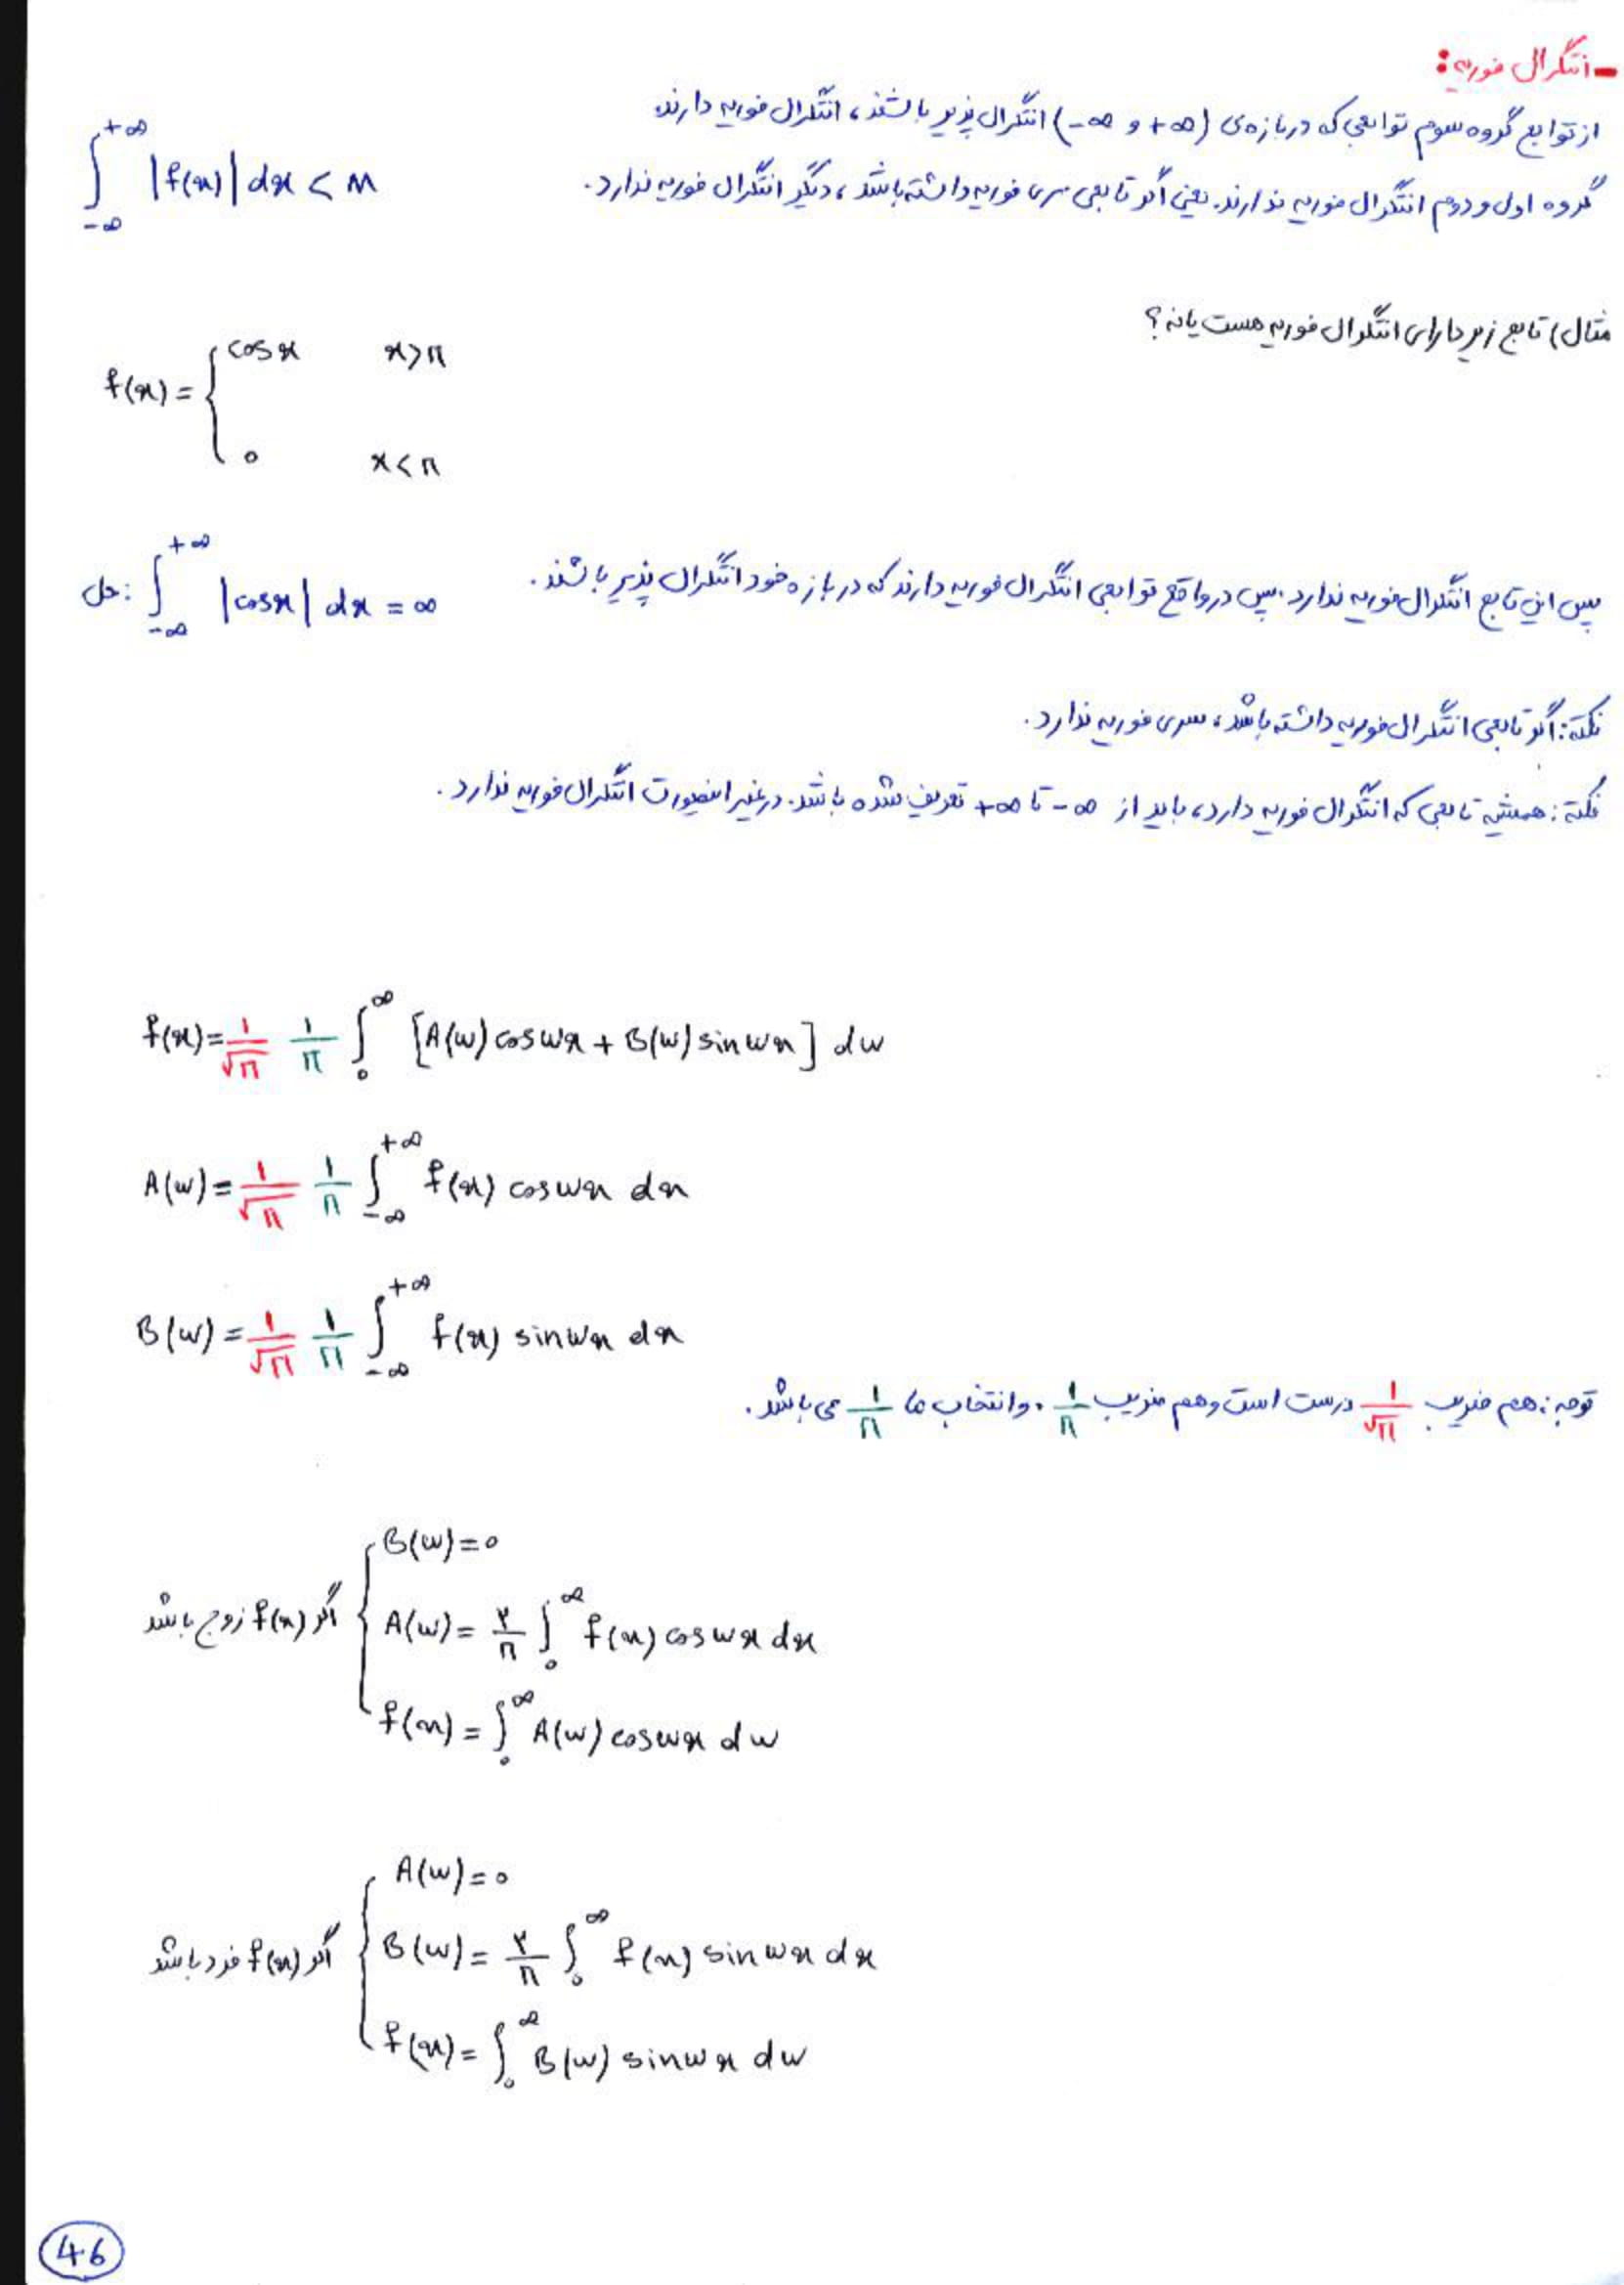 - انتگرال فوریه:
از توابع گروه سوم توابعی که در بازه‌ی (∞+ و ∞-) انتگرال پذیر باشند، انتگرال فوریه دارند
∫_{-∞}^{+∞} |f(x)| dx < M
گروه اول و دوم انتگرال فوریه ندارند. یعنی اگر تابعی سری فوریه داشته باشد، دیگر انتگرال فوریه ندارد.
مثال) تابع زیر دارای انتگرال فوریه هست یا نه؟
f(x) = { cosx    x>π
0    x<π
حل: ∫_{-∞}^{+∞} |cosx| dx = ∞
پس این تابع انتگرال فوریه ندارد. پس در واقع توابعی انتگرال فوریه دارند که در بازه خود انتگرال پذیر باشند.
نکته: اگر تابعی انتگرال فوریه داشته باشد، سری فوریه ندارد.
نکته: همیشه تابعی که انتگرال فوریه دارد، باید از ∞- تا ∞+ تعریف شده باشد. در غیر اینصورت انتگرال فوریه ندارد.
f(x) = 1/√π 1/π ∫_0^∞ [A(w) coswx + B(w) sinwx] dw
A(w) = 1/√π 1/π ∫_{-∞}^{+∞} f(x) coswx dx
B(w) = 1/√π 1/π ∫_{-∞}^{+∞} f(x) sinwx dx
توجه: هم ضریب 1/√π درست است و هم ضریب 1/π. و انتخاب ما 1/π می باشد.
B(w) = 0
اگر f(x) زوج باشد { A(w) = ۲/π ∫_0^∞ f(x) coswx dx
f(x) = ∫_0^∞ A(w) coswx dw
A(w) = 0
اگر f(x) فرد باشد { B(w) = ۲/π ∫_0^∞ f(x) sinwx dx
f(x) = ∫_0^∞ B(w) sinwx dw
46